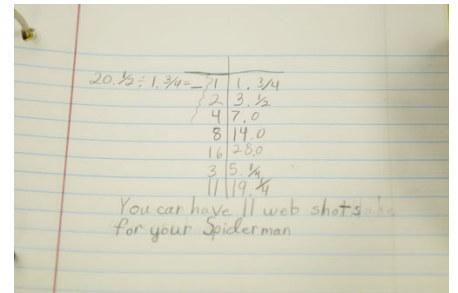 20.½ ÷ 1.3/4 = 1 | 1.3/4
2 | 3.½
4 | 7.0
8 | 14.0
16 | 28.0
3 | 5.¼
11 | 19.¼
You can have 11 web shots
for your Spiderman